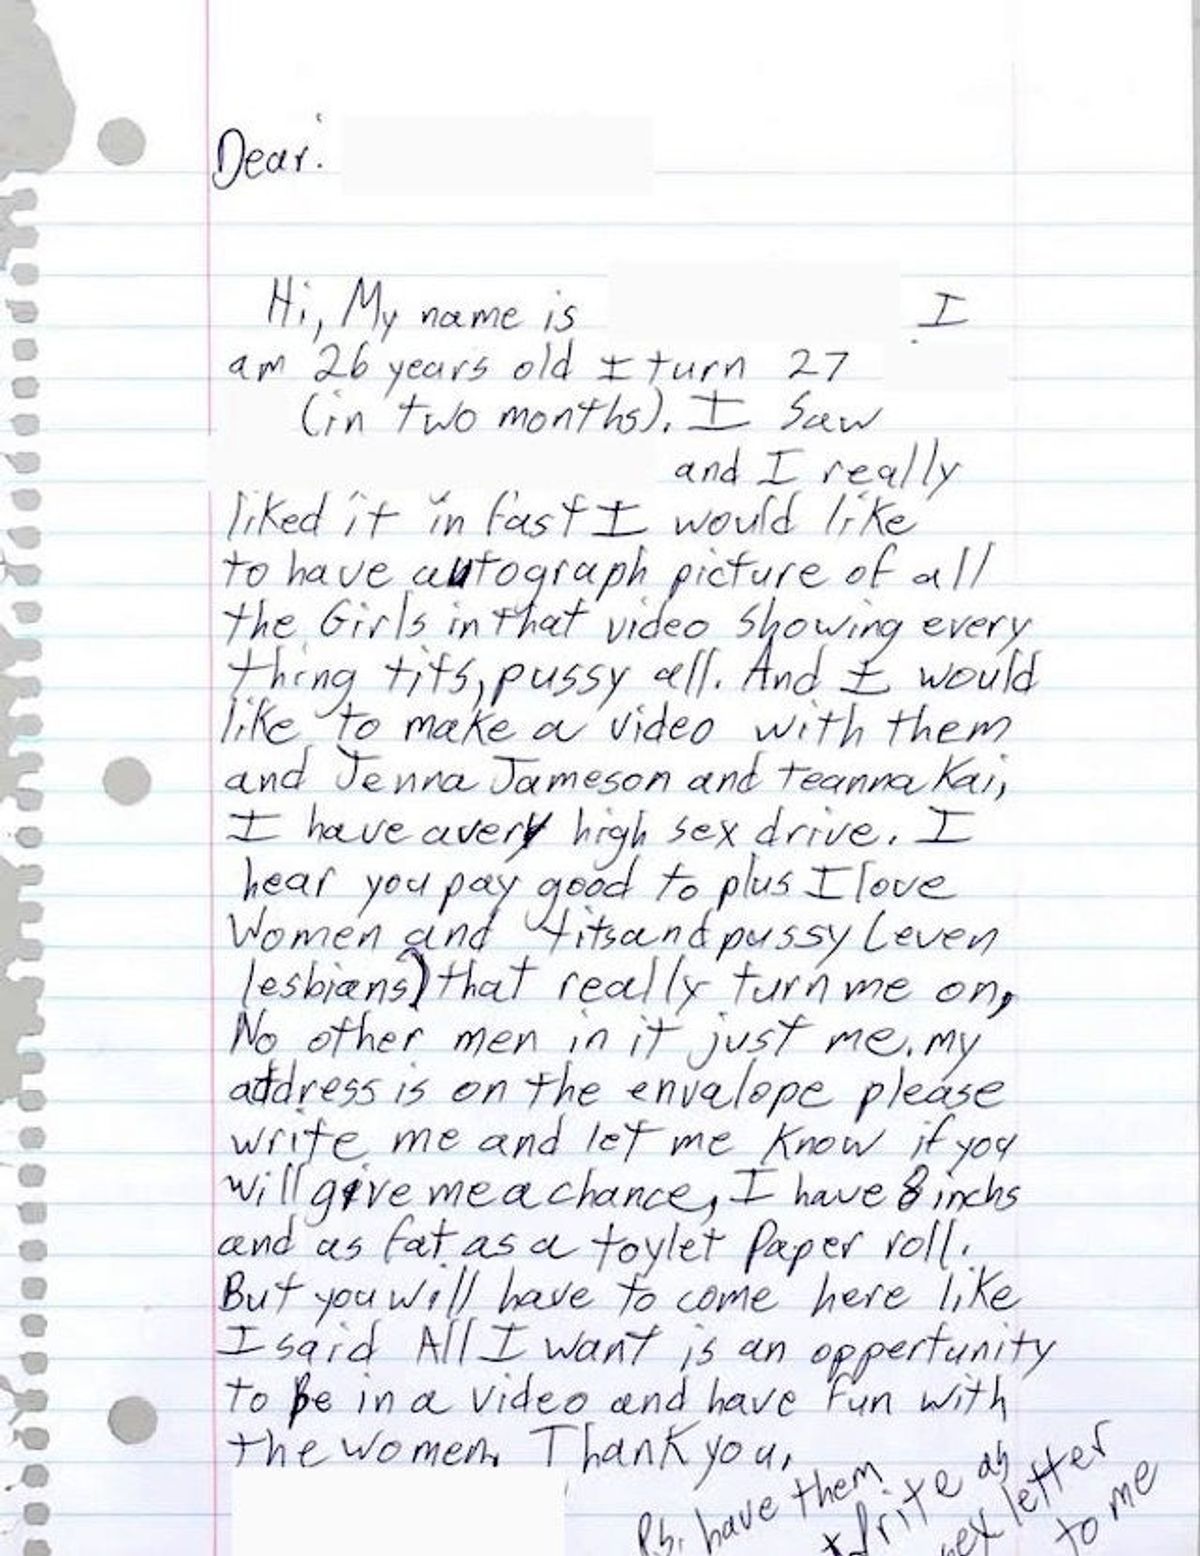 Dear:
Hi, My name is I
am 26 years old I turn 27
(in two months). I Saw
and I really
liked it in fast I would like
to have autograph picture of all
the Girls in that video showing every
thing tits, pussy all. And I would
like to make a video with them
and Jenna Jameson and teanna Kai,
I have avery high sex drive. I
hear you pay good to plus I love
Women and titsandpussy (even
lesbians) that really turn me on,
No other men in it just me. my
address is on the envalope please
write me and let me know if you
will give me a chance, I have 8 inchs
and as fat as a toylet Paper roll.
But you will have to come here like
I said All I want is an opportunity
to be in a video and have fun with
the women. Thank you,
Ps. have them
write as
sex letter
to me